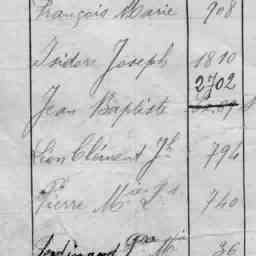 François Marie 908
Isidore Joseph 1810
2702
Jean Baptiste
Léon Clément Jh 794
Pierre Mie Js 740
Ferdinand 36